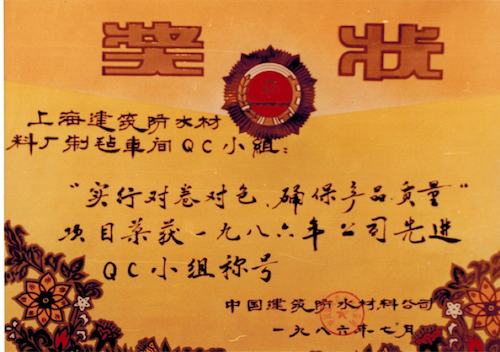 奖状
上海建筑防水材
料厂制毡车间QC小组：
“实行对卷对色、确保产品质量”
项目荣获一九八六年公司先进
QC小组称号
中国建筑防水材料公司
一九八六年七月